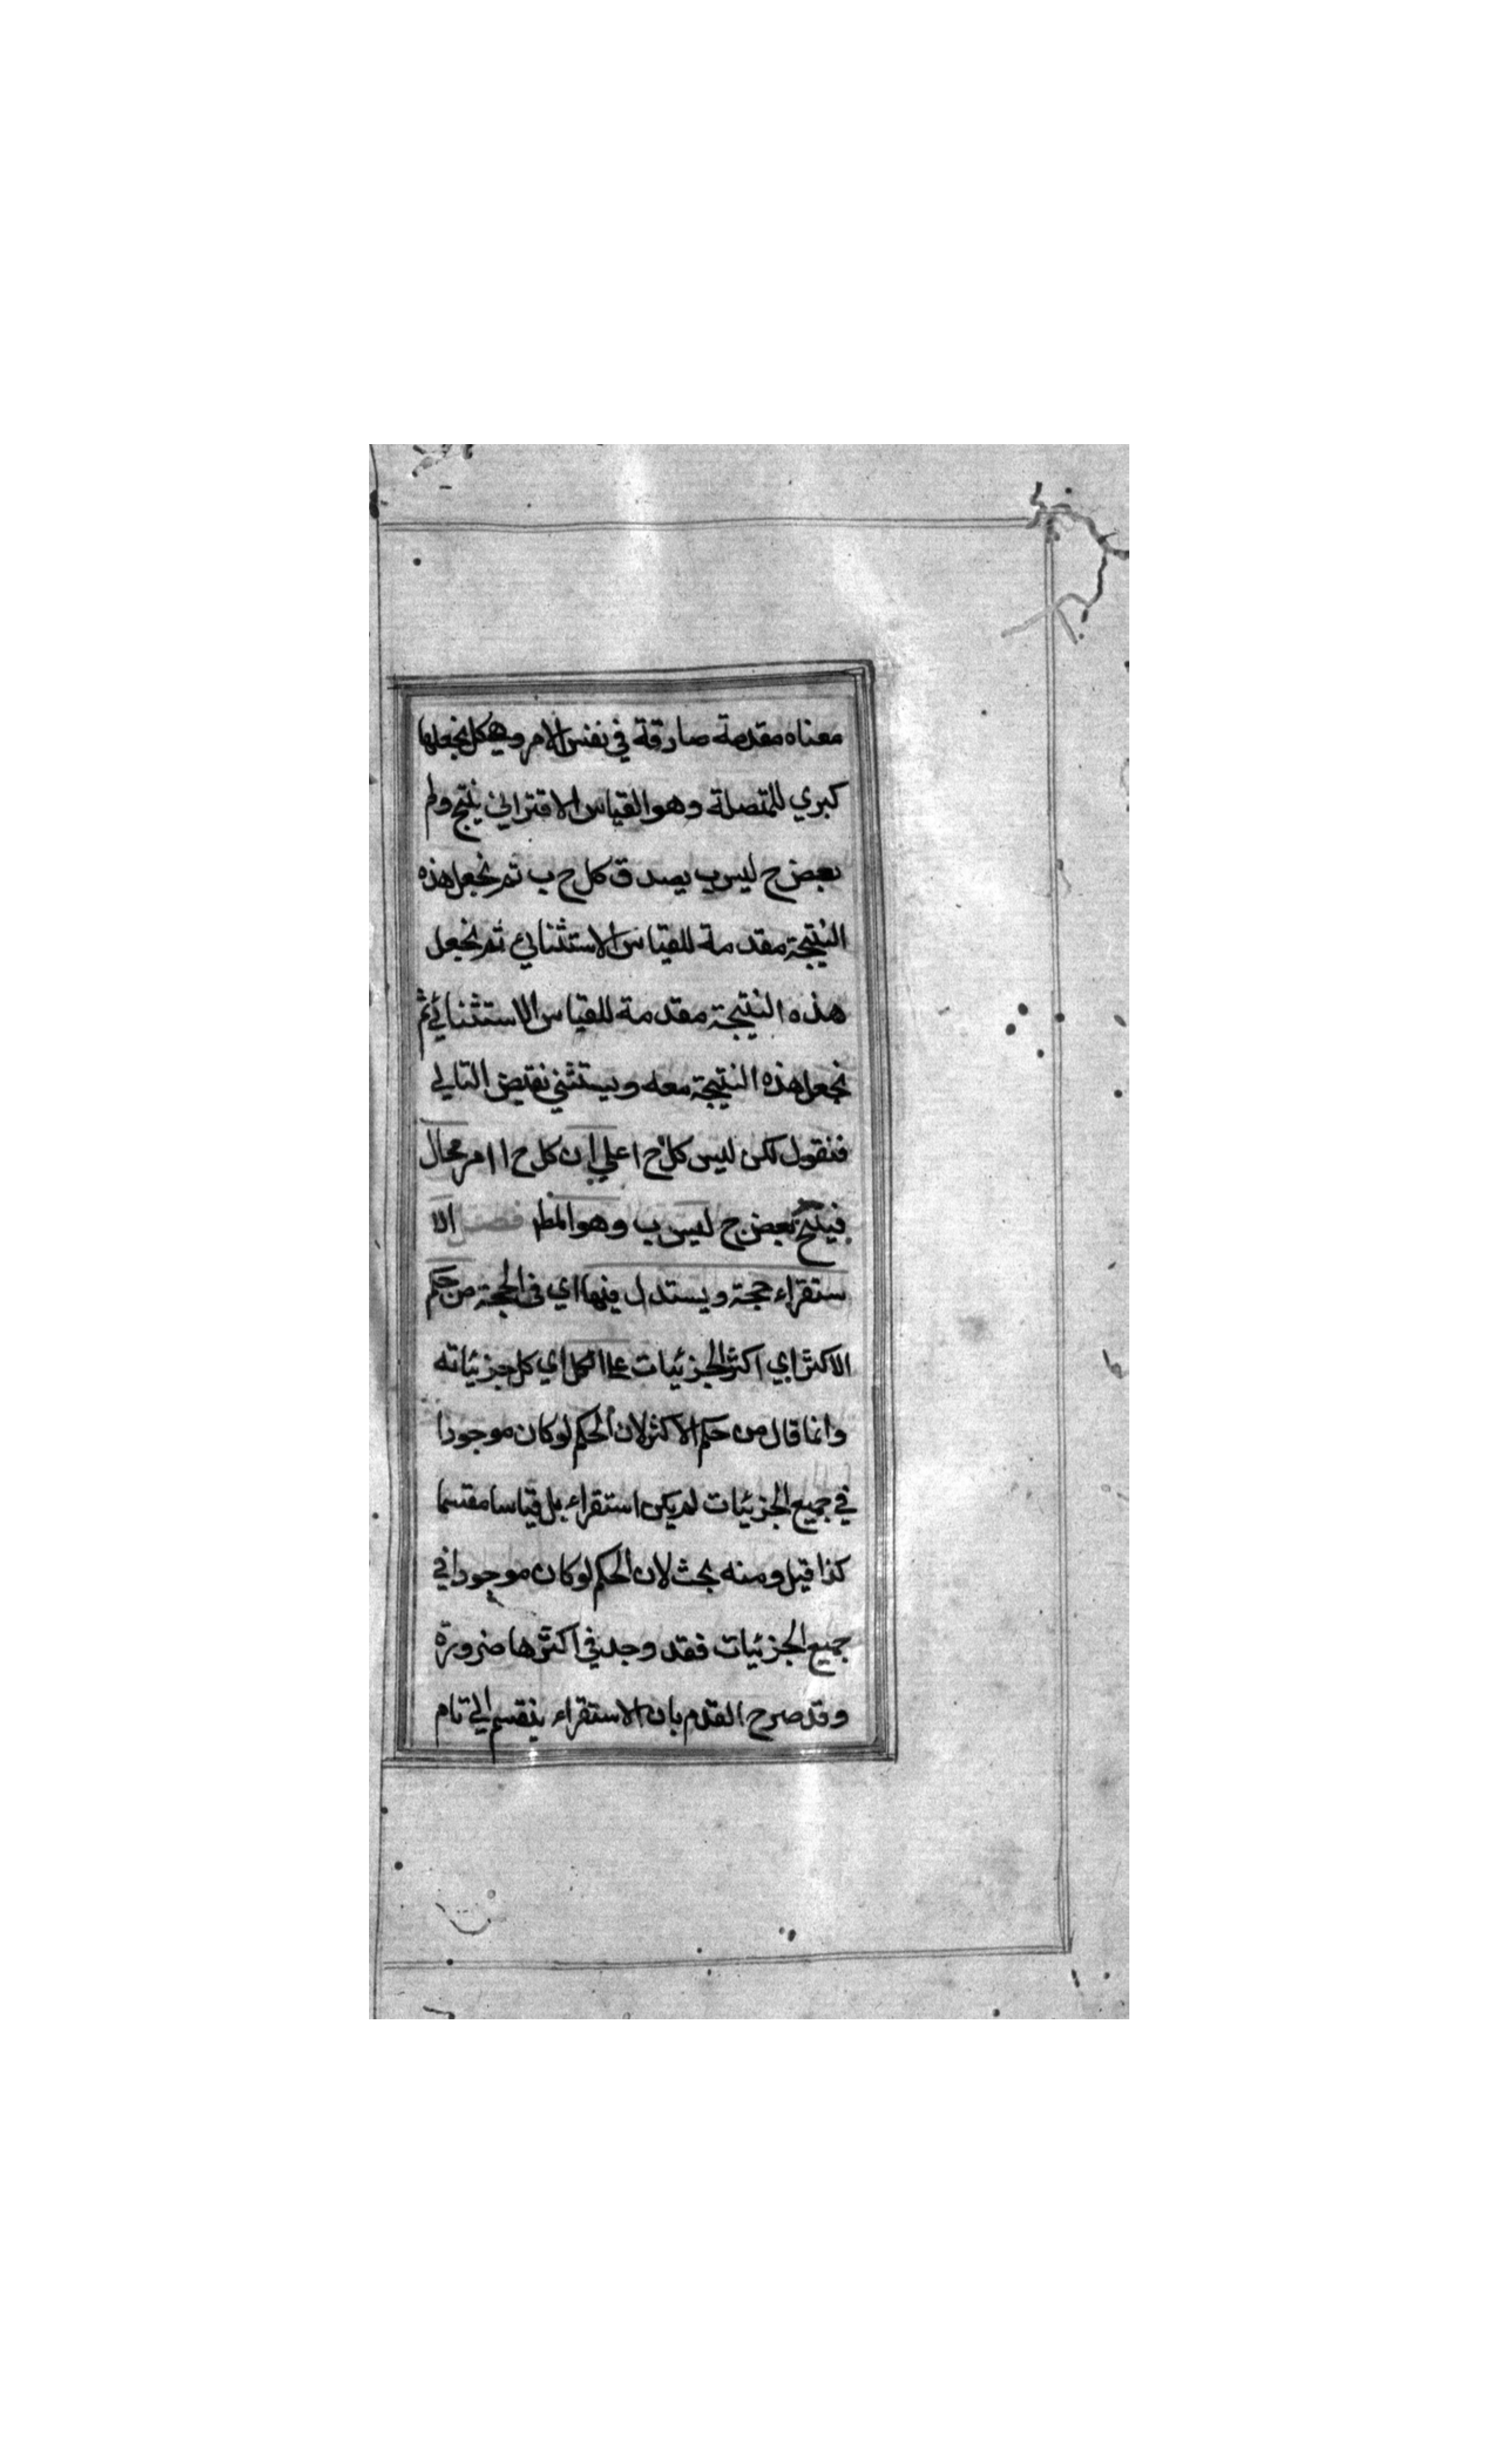 معناه مقدمة صادقة في نفس الامر وهي كل نجعلها
كبري للمتصلة وهو القياس الاقتراني ينتج ولم
بعض ح ليس ب يصدق كل ح ب ثم نجعل هذه
النتيجة مقدمة للقياس الاستثنائي ثم نجعل
هذه النتيجة مقدمة للقياس الاستثنائي ثم
نجعل هذه النتيجة معه ويستثني نقيض التالي
فنقول لكن ليس كل ح ا علي ان كل ح ا امر محال
فينتج بعض ج ليس ب وهو المط فصل الا
ستقراء حجة ويستدل فيها اي في الحجة من حكم
الاكثر اي اكثر الجزئيات علا الكل اي كل جزئياته
وانما قال من حكم الاكثر لان الحكم لو كان موجودا
في جميع الجزئيات لم يكن استقراء بل قياسا مقسما
كذا قيل ومنه بحث لان الحكم لو كان موجودا في
جميع الجزئيات فقد وجد في اكثرها ضرورة
وقد صرح القدم بان الاستقراء ينقسم الي تام